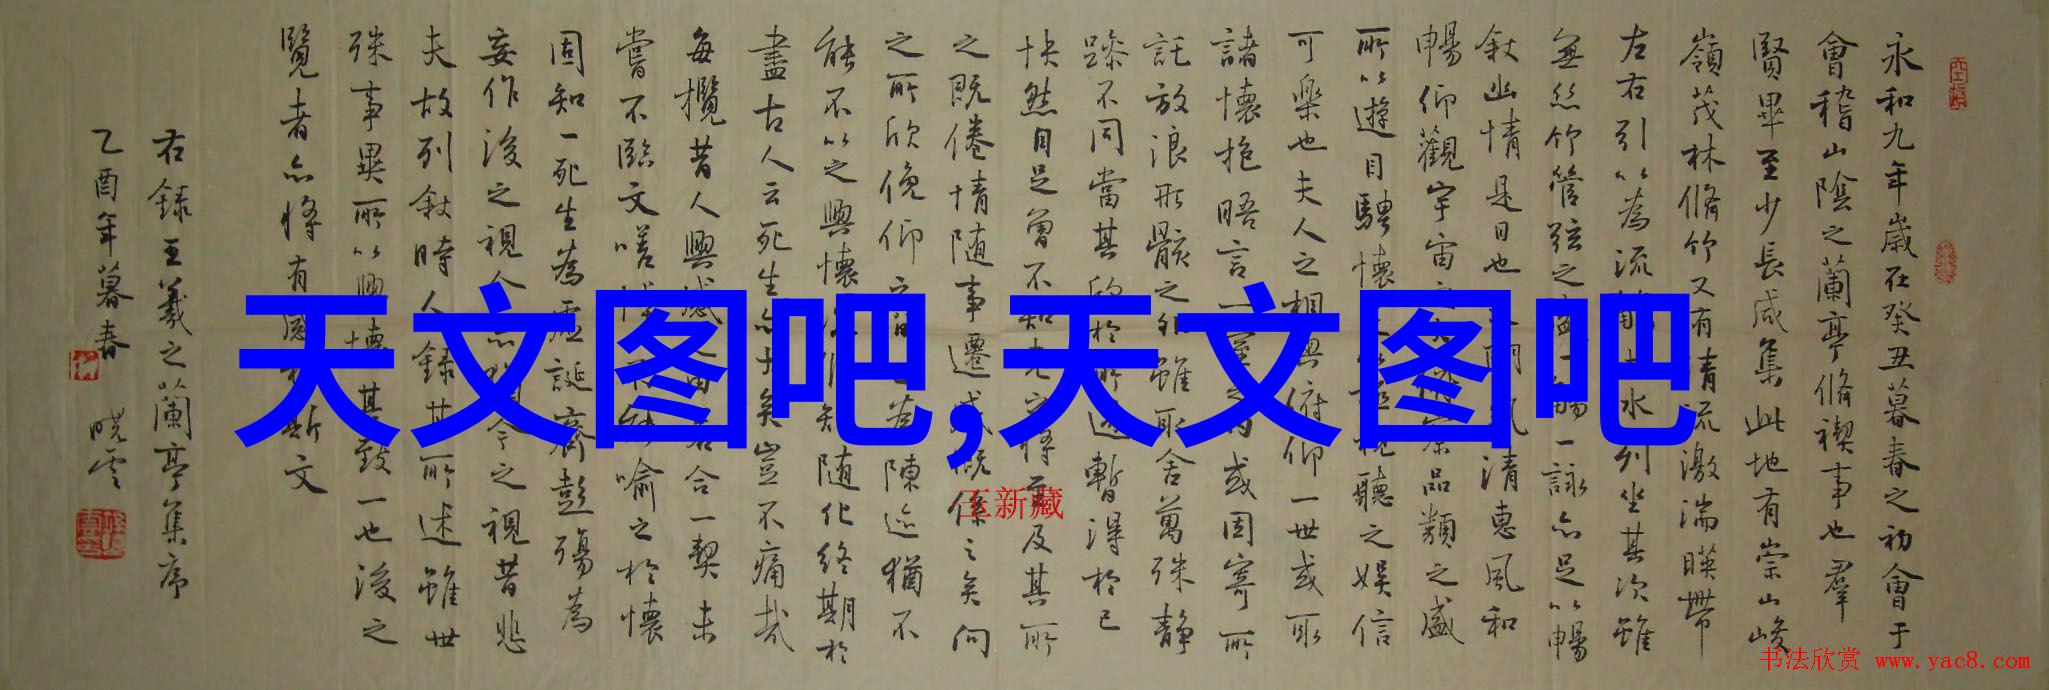 永和九年歲在癸丑暮春之初會于
會稽山陰之蘭亭脩禊事也群
賢畢至少長咸集此地有崇山峻
嶺茂林脩竹又有清流激湍暎帶
左右引以為流水列坐其次雖
無絲竹管弦之盛一觴一詠亦足以暢
敘幽情是日也朗氣清惠風和
暢仰觀宇宙察品類之盛
所以遊目騁懷視聽之娛信
可樂也夫人之相與俯仰一世或取
諸懷抱晤言一室之內或因寄所
託放浪形骸之外雖取舍萬殊靜
躁不同當其欣於所遇暫得於己
快然自足曾不知老之將至及其所
之既倦情随事遷感慨係之矣向
之所欣俛仰之間已為陳迹猶不
能不以之興懷况随化終期於
盡古人云死生亦大矣豈不痛哉
每攬昔人興感之由若合一契未
嘗不臨文嗟悼不能喻之於懷
固知一死生為虛誕齊彭殤為
妄作後之視今亦猶今之視昔悲
夫故列敘時人錄其所述雖世
殊事異所以興懷其致一也後之
覽者亦將有感於斯文
右録王羲之蘭亭集序
乙酉年暮春 曉雲
天文图吧,天文图吧
王新藏
书法欣赏 www.yac8.com